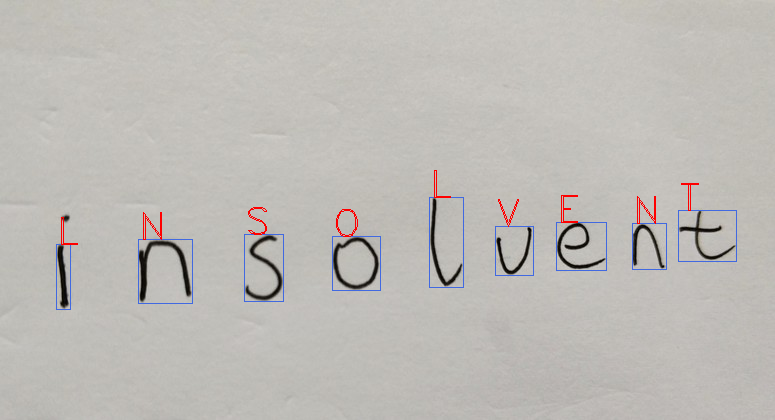 L N S O L V E N T
insolvent